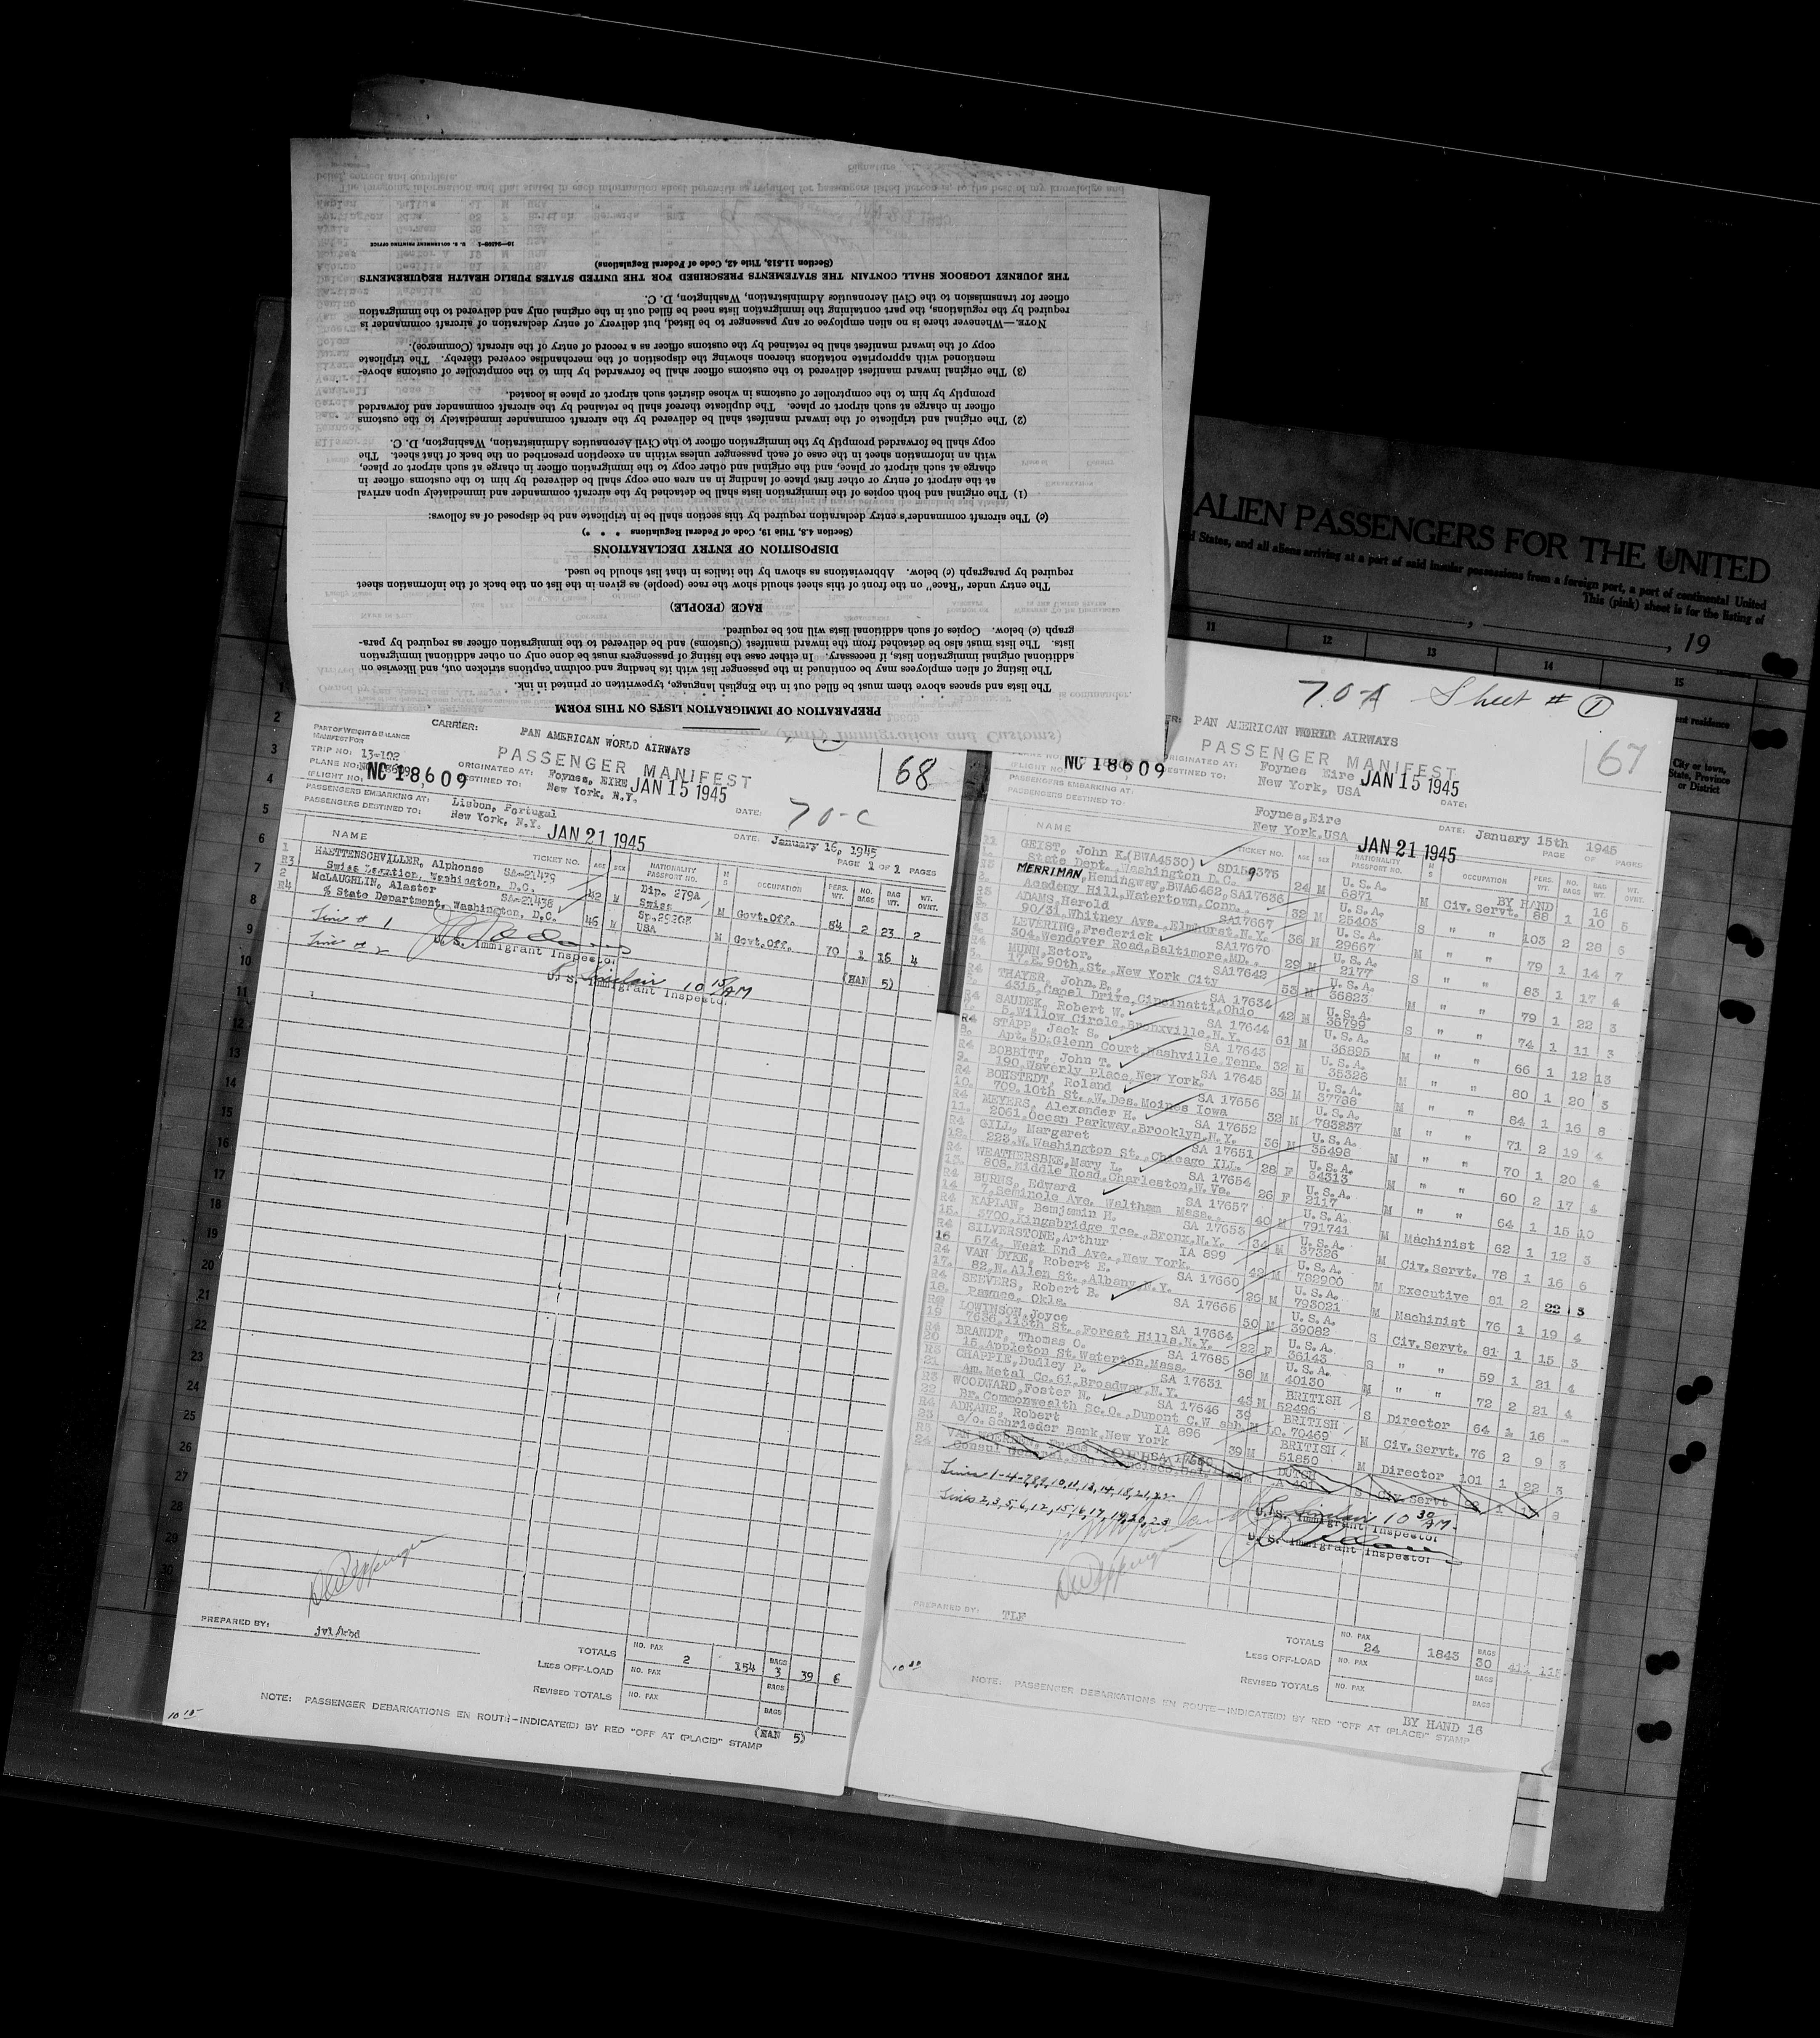 PREPARATION OF IMMIGRATION LISTS ON THIS FORM
The lists and spaces above them must be filled out in the English language, typewritten or printed in ink.
The listing of alien employees may be continued in the passenger list with its heading and column captions stricken out, and likewise on
additional original immigration lists, if necessary. In either case the listing of passengers must be done only on other additional immigration
lists. The lists must also be detached from the inward manifest (Customs) and be delivered to the immigration officer as required by para-
graph (c) below. Copies of such additional lists will not be required.
RACE (PEOPLE)
The entry under "Race" on the front of this sheet should show the race (people) as given in the list on the back of the information sheet
required by paragraph (c) below. Abbreviations as shown by the italics in that list should be used.
DISPOSITION OF ENTRY DECLARATIONS
(Section 4.3, Title 19, Code of Federal Regulations * * *)
(c) The aircraft commander's entry declaration required by this section shall be in triplicate and be disposed of as follows:
(1) The original and both copies of the immigration lists shall be detached by the aircraft commander and immediately upon arrival
at the airport of entry or other first place of landing in an area one copy shall be delivered by him to the customs officer in
charge at such airport or place, and the original and other copy to the immigration officer in charge at such airport or place,
with an information sheet in the case of each passenger unless within an exception prescribed on the back of that sheet. The
copy shall be forwarded promptly by the immigration officer to the Civil Aeronautics Administration, Washington, D. C.
(2) The original and triplicate of the inward manifest shall be delivered by the aircraft commander immediately to the customs
officer in charge at such airport or place. The duplicate thereof shall be retained by the aircraft commander and forwarded
promptly by him to the comptroller of customs in whose district such airport or place is located.
(3) The original inward manifest delivered to the customs officer shall be forwarded by him to the comptroller of customs above-
mentioned with appropriate notations thereon showing the disposition of the merchandise covered thereby. The triplicate
copy of the inward manifest shall be retained by the customs officer as a record of entry of the aircraft (Commerce).
NOTE.—Whenever there is no alien employee or any passenger to be listed, but delivery of entry declaration of aircraft commander is
required by the regulations, the part containing the immigration lists need be filled out in the original only and delivered to the immigration
officer for transmission to the Civil Aeronautics Administration, Washington, D. C.
THE JOURNEY LOGBOOK SHALL CONTAIN THE STATEMENTS PRESCRIBED FOR THE UNITED STATES PUBLIC HEALTH REQUIREMENTS
(Section 11.513, Title 42, Code of Federal Regulations)
U. S. GOVERNMENT PRINTING OFFICE
ALIEN PASSENGERS FOR THE UNITED
d States, and all aliens arriving at a port of said insular possessions from a foreign port, a port of continental United
This (pink) sheet is for the listing of
, 19
11 12 13 14 15
City or town,
State, Province
or District
PART OF WEIGHT & BALANCE
MANIFEST FOR
CARRIER: PAN AMERICAN WORLD AIRWAYS
PASSENGER MANIFEST
68
TRIP NO: 13-102
PLANE NO: NC 18609
FLIGHT NO:
ORIGINATED AT: Foynes, EIRE JAN 15 1945
DESTINED TO: New York, N.Y.
DATE: 70-C
PASSENGERS EMBARKING AT: Lisbon, Portugal
PASSENGERS DESTINED TO: New York, N.Y. JAN 21 1945
DATE: January 16, 1945
PAGE 1 OF 1 PAGES
NAME TICKET NO. AGE SEX NATIONALITY PASSPORT NO. M S OCCUPATION PERS. WT. NO. BAGS BAG WT. WT. OVWT.
1 HAETTENSCHVILLER, Alphonse SA-21479 42 M Dip. 279A M Govt.Off. 84 2 23 2
R3 Swiss Legation, Washington, D.C. Swiss
2 McLAUGHLIN, Alaster SA-21438 46 M USA M Govt.Off. 70 1 16 4
R4 % State Department, Washington, D.C.
(HAN 5)
Line # 1
U. S. Immigrant Inspector
Line # 2
10 15 AM
U. S. Immigrant Inspector
PREPARED BY: jvl/kbd
TOTALS NO. PAX 2 154 BAGS 3 39 6
LESS OFF-LOAD NO. PAX BAGS
REVISED TOTALS NO. PAX BAGS
(HAN 5)
NOTE: PASSENGER DEBARKATIONS EN ROUTE—INDICATE(D) BY RED "OFF AT (PLACE)" STAMP
10 15
70-A Sheet # 1
PAN AMERICAN WORLD AIRWAYS
PASSENGER MANIFEST
67
NC 18609
ORIGINATED AT: Foynes Eire JAN 15 1945
DESTINED TO: New York, USA
DATE:
PASSENGERS EMBARKING AT: Foynes,Eire
PASSENGERS DESTINED TO: New York,USA JAN 21 1945
DATE: January 15th 1945
PAGE OF PAGES
NAME TICKET NO. AGE SEX NATIONALITY PASSPORT NO. M S OCCUPATION PERS. WT. NO. BAGS BAG WT. WT. OVWT.
GEIST, John K.(BWA4530) 24 M U.S.A. 6871 M Civ.Servt. 88 1 16
State Dept. Washington D.C. BY HAND 10 5
MERRIMAN, Hemingway,BWA6462,SA17636 32 M U.S.A. 25403 S " " 103 2 28 6
Academy Hill,Watertown,Conn.
ADAMS,Harold SA17667 36 M U.S.A. 29667 M " " 79 1 14 7
90/31,Whitney Ave.,Elmhurst,N.Y.
LEVERING,Frederick SA17670 29 M U.S.A. 2177 S " " 83 1 17 4
304.Wendover Road,Baltimore.MD.
MUNN,Ector. SA17642 53 M U.S.A. 36823 M " " 79 1 22 3
17.E.90th.St.,New York City
THAYER, John.B., SA 17634 42 M U.S.A. 36799 S " " 74 1 11 3
4315.Mapel Drive,Cincinatti,Ohio
SAUDEK, Robert W. SA 17644 61 M U.S.A. 36895 M " " 66 1 12 13
5.Willow Circle,Bronxville,N.Y.
STAPP, Jack S. SA 17643 32 M U.S.A. 35326 M " " 80 1 20 3
Apt.5D.Glenn Court,Nashville,Tenn.
BOBBITT, John T. SA 17645 35 M U.S.A. M " " 84 1 16 8
190.Waverly Place,New York.
BOHSTEDT, Roland SA 17656 32 M U.S.A. 783237 M " " 71 2 19 4
709.10th St.,W.Des.Moines Iowa
MEYERS, Alexander H. SA 17652 36 M U.S.A. 35498 M " " 70 1 20 4
2061.Ocean Parkway,Brooklyn,N.Y.
GILL, Margaret SA 17651 28 F U.S.A. 34313 M " " 60 2 17 4
223.W.Washington St.,Chicago ILL.
WEATHERSBEE,Mary L. SA 17654 26 F U.S.A. 2117 M " " 64 1 15 10
808.Middle Road,Charleston,W.Va.
BURNS, Edward SA 17657 40 M U.S.A. 791741 M Machinist 62 1 12 3
7.Seminole Ave. Waltham Mass.
KAPLAN, Bemjamin H. SA 17653 34 M U.S.A. 37326 M Civ.Servt. 78 1 16 6
3700.Kingsbridge Tce.,Bronx,N.Y.
SILVERSTONE,Arthur IA 899 42 M U.S.A. 782900 M Executive 81 2 22 3
574. West End Ave.,New York.
VAN DYKE, Robert E. SA 17660 26 M U.S.A. 793021 M Machinist 76 1 19 4
82.N.Allen St.,Albany,N.Y.
SEEVERS, Robert B. SA 17665 50 M U.S.A. 39082 S Civ.Servt. 81 1 15 3
Pawnee, Okla.
LOWINSON,Joyce SA 17664 22 F U.S.A. 36143 S " " 59 1 21 4
7636.113th St.,Forest Hills,N.Y.
BRANDT, Thomas O. SA 17685 38 M U.S.A. 40130 M " " 72 2 21 4
15.Appleton St.Waterton,Mass.
CHAPPIE,Dudley P. SA 17631 43 M BRITISH 52496 S Director 64 1 16
Am.Metal Co.61,Broadway,N.Y.
WOODWARD,Foster N. SA 17646 39 M BRITISH LO.70469 M Civ.Servt. 76 2 9 3
Br.Commonwealth Sc.O.,Dupont C.W ashb
ADEANE, Robert IA 896 39 M BRITISH 51850 M Director 101 1 22 3
c/o.Schrieder Bank,New York
DUTCH S Civ.Servt 8
Consul General,San
Lines 1-4-7,8,9,10,11,13,14,18,21,22
10 30 AM
U.S. Immigrant Inspector
Lines 2,3,5,6,12,15,16,17,19,20,23
U.S. Immigrant Inspector
PREPARED BY: TLF
TOTALS NO. PAX 24 1843 BAGS 30 411 113
LESS OFF-LOAD NO. PAX BAGS
REVISED TOTALS NO. PAX BAGS
BY HAND 16
10 30
NOTE: PASSENGER DEBARKATIONS EN ROUTE—INDICATE(D) BY RED "OFF AT (PLACE)" STAMP